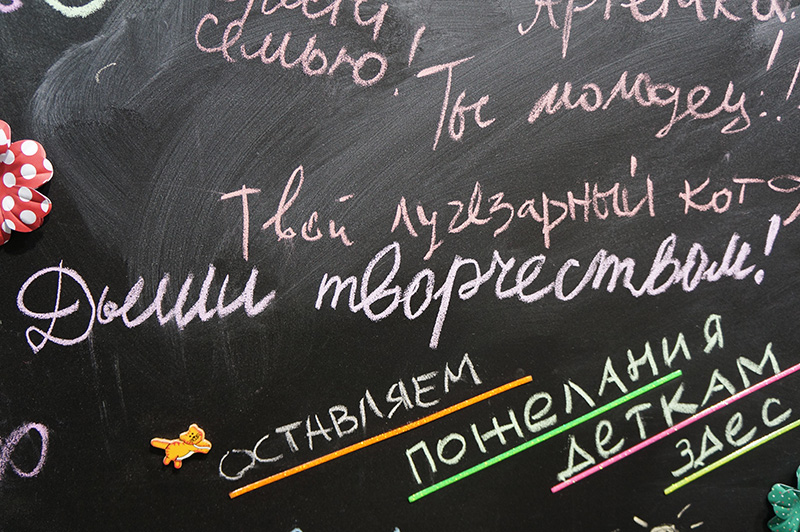 семью!
Ты молодец!!
Твой лугезарный кот
Дыши творчеством!
ОСТАВЛЯЕМ
ПОЖЕЛАНИЯ
ДЕТКАМ
ЗДЕС